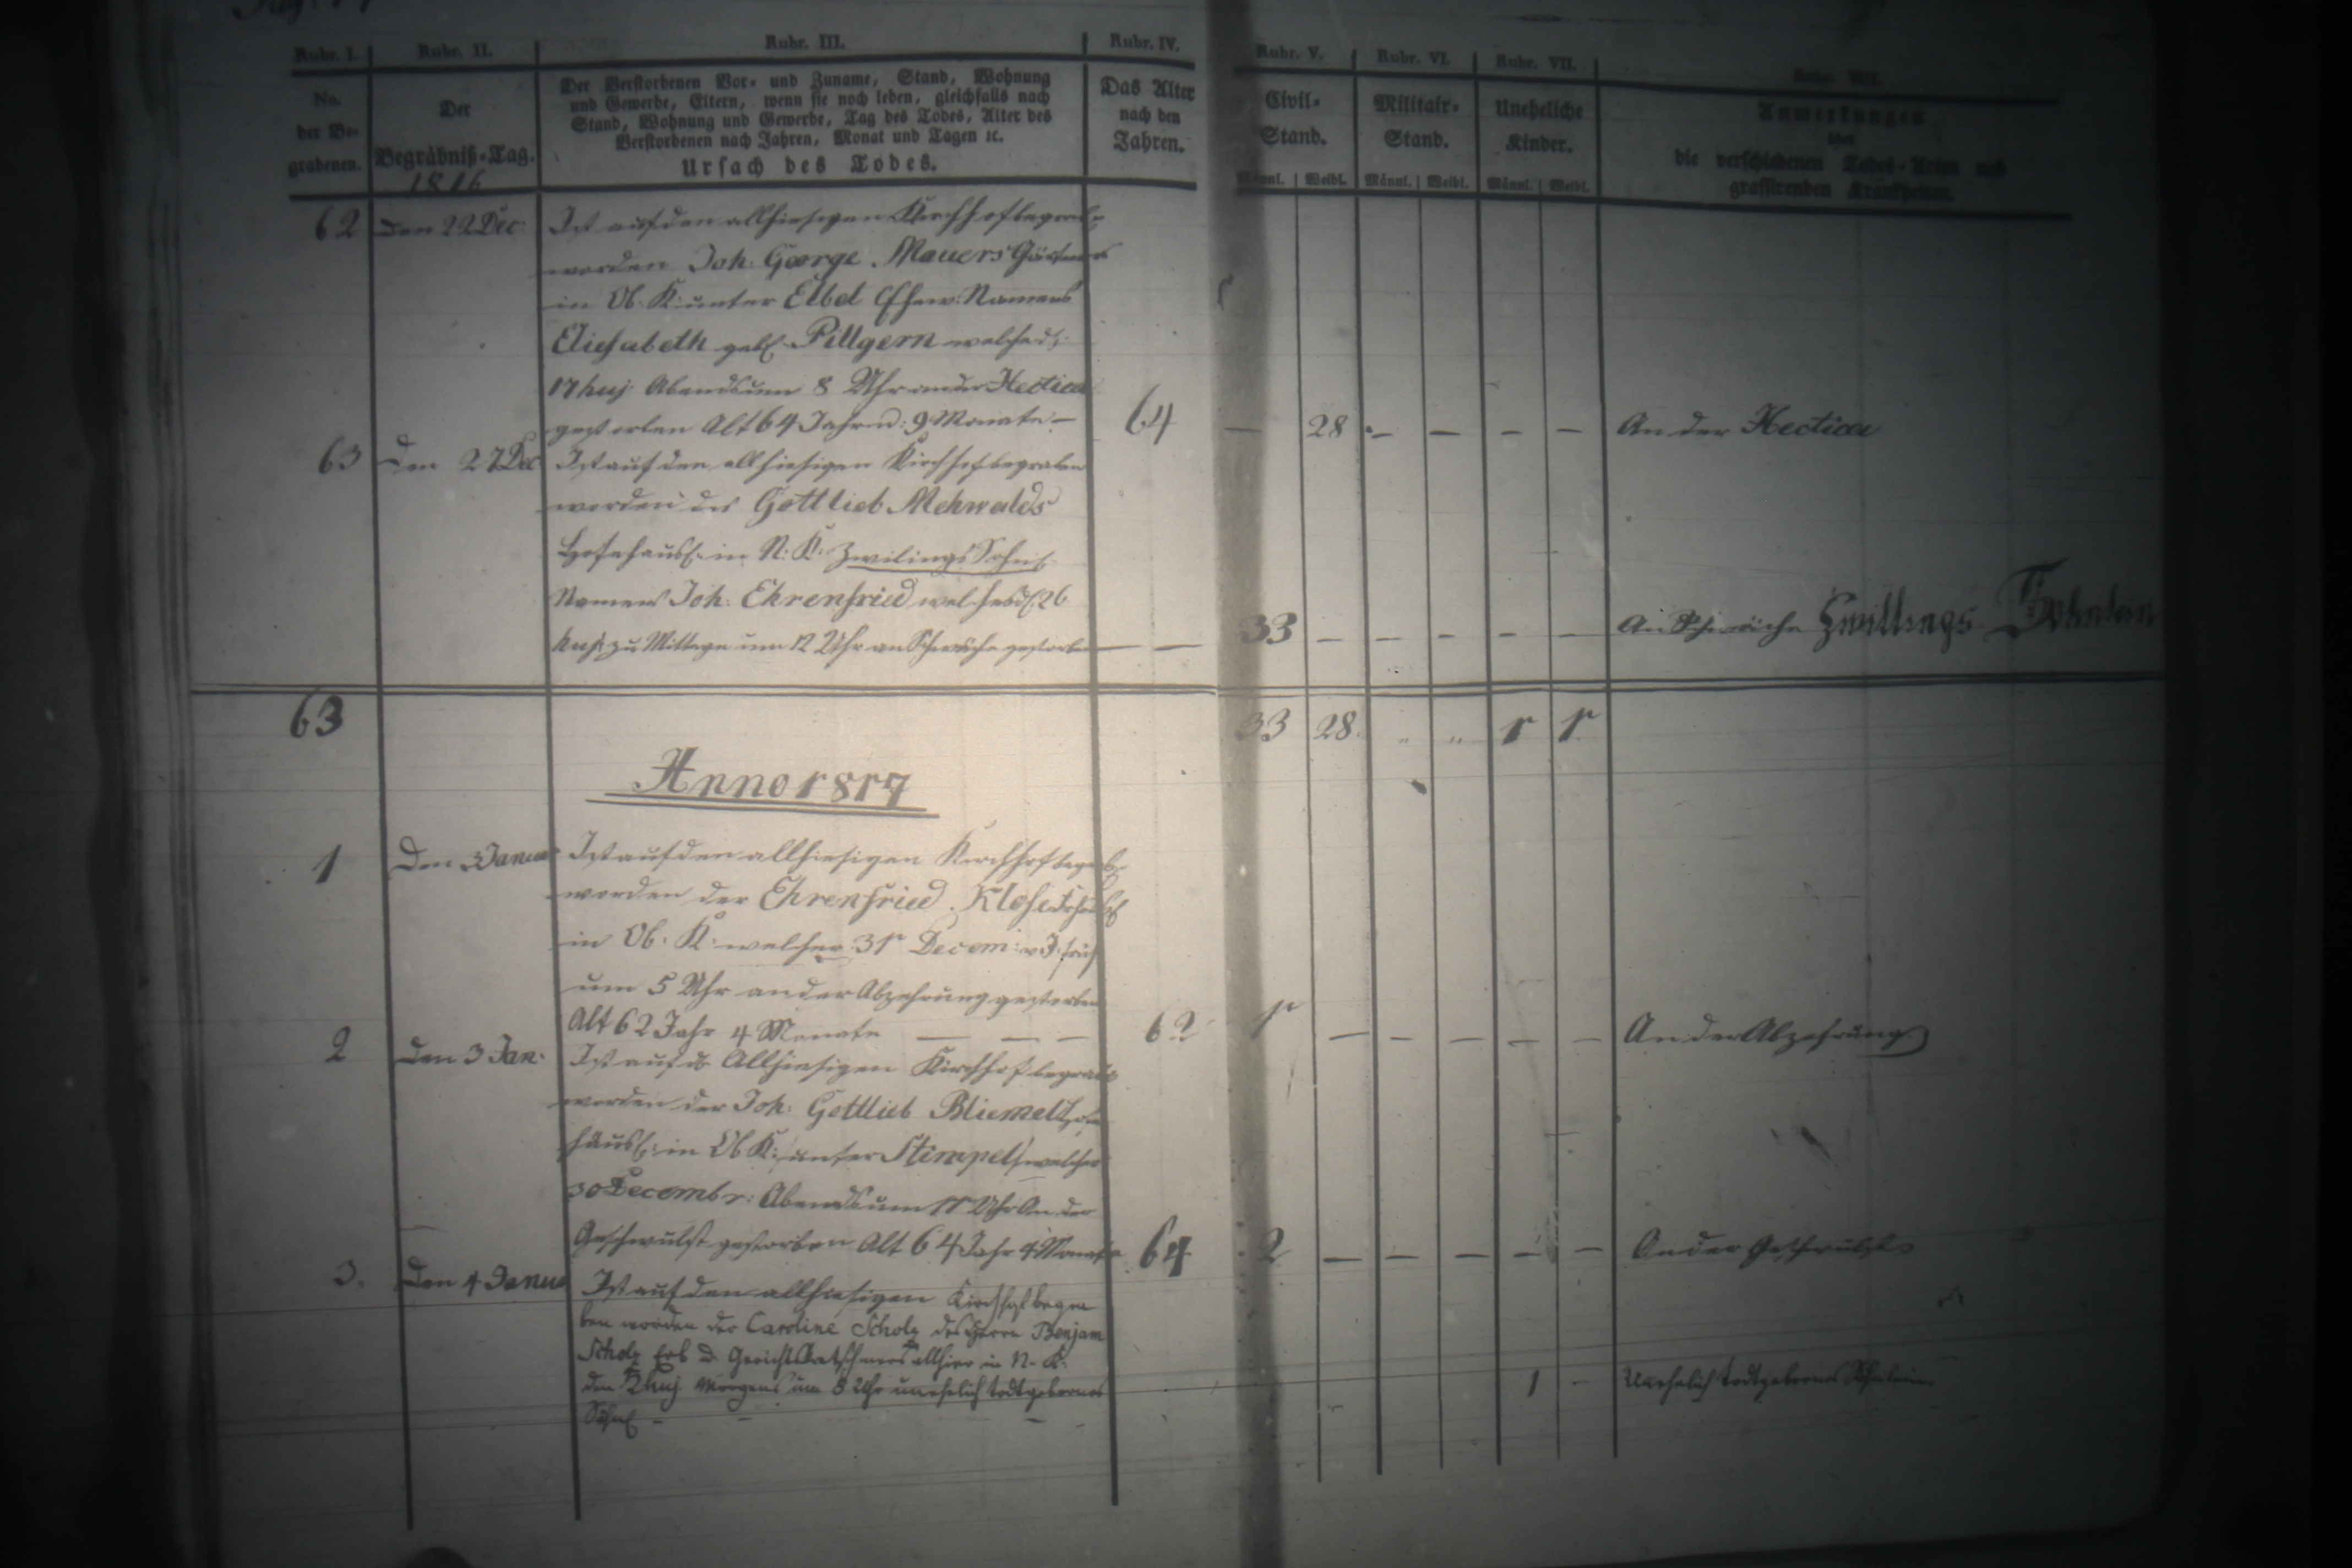 Rubr. I. Rubr. II. Rubr. III. Rubr. IV. Rubr. V. Rubr. VI. Rubr. VII. Rubr. VIII.
No. der Be-grabenen.
Der Begräbniß-Tag.
1816
Der Verstorbenen Vor- und Zuname, Stand, Wohnung
und Gewerbe, Eltern, wenn sie noch leben, gleichfalls nach
Stand, Wohnung und Gewerbe, Tag des Todes, Alter des
Verstorbenen nach Jahren, Monat und Tagen ic.
Ursach des Todes.
Das Alter
nach den
Jahren.
Civil-
Stand.
Männl. Weibl.
Militair-
Stand.
Männl. Weibl.
Uneheliche
Kinder.
Männl. Weibl.
Anmerkungen
über
die verschiedenen Todes-Arten und
grassirenden Krankheiten.
62 Den 22 Dec: Ist auf den allhiesigen Kirchhof begrab:
worden Joh: George Mauers Gärtners
in Ob: K: unter Elbel Ehew: Namens
Eliesabeth geb. Pillgern welche d:
17 huj: Abends um 8 Uhr an der Hectica
gestorben Alt 64 Jahr u: 9 Monate – 64 — 28 — — — — An der Hectica
63 Den 27 Dec Ist auf den allhiesigen Kirchhof begraben
worden des Gottlieb Mehwalds
Hofehäusl: in N: K: Zwilings Söhnl
Namens Joh: Ehrenfried welches d 26
huj: zu Mittage um 12 Uhr an Schwäche gestorben — — 33 — — — — — An Schwäche Zwillings Söhnlein
63 33 28. " " 1 1
Anno 1817
1 Den 3 Janua Ist auf den allhiesigen Kirchhof begrab:
worden der Ehrenfried Klose
in Ob: K: welcher 31 Decem: v J: früh
um 5 Uhr an der Abzehrung gestorben
Alt 62 Jahr 4 Monate — — — 62 1 — — — — — An der Abzehrung
2 Den 3 Jan: Ist auf d Allhiesigen Kirchhof begrab
worden der Joh: Gottlieb Bliemel Hofe
häusl: in Ob K: unter Stimpel welcher
30 Decembr: Abends um 11 Uhr An der
Geschwulst gestorben Alt 64 Jahr 4 Monate 64 2 — — — — — An der Geschwulst
3. Den 4 Janua Ist auf den allhiesigen Kirchhof begra
ben worden der Caroline Scholz des Herrn Benjam
Scholz Erb u Gerichtskretschmers allhier in N. K.
den 2 huj. Morgens um 8 Uhr unehelich todtgebornes
Söhnl – – – 1 – Unehelich todtgebornes Söhnlein